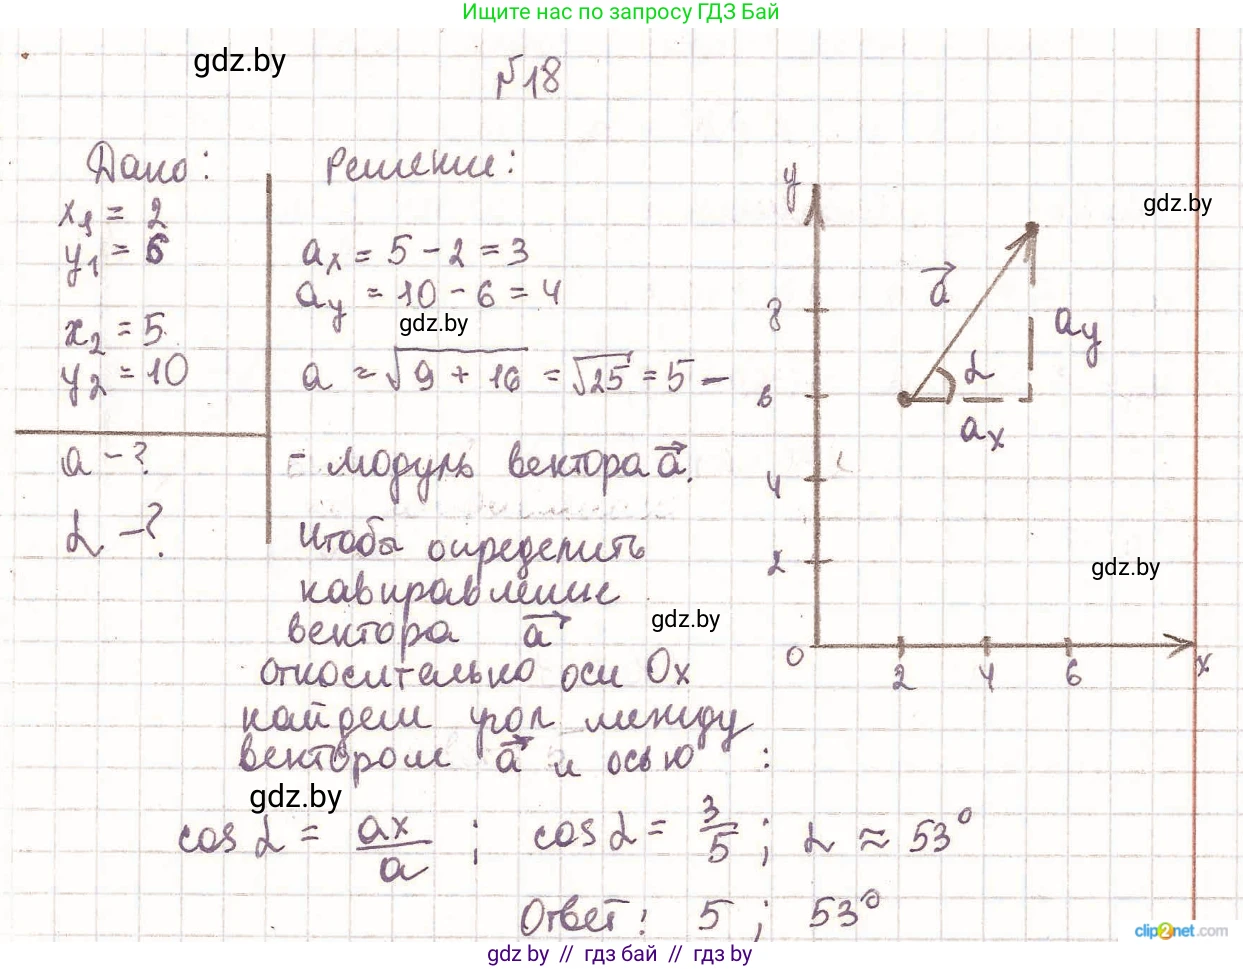 Ищите нас по запросу ГДЗ Бай
gdz.by
№18
Дано:
x₁ = 2
y₁ = 6
x₂ = 5
y₂ = 10
a - ?
α - ?
Решение:
aₓ = 5 - 2 = 3
a_y = 10 - 6 = 4
gdz.by
a = √9 + 16 = √25 = 5 -
- модуль вектора a⃗.
Чтобы определить
направление
вектора a⃗
gdz.by
относительно оси Ox
найдем угол между
вектором a⃗ и осью :
gdz.by
cos α = aₓ/a ; cos α = 3/5 ; α ≈ 53°
Ответ: 5 ; 53°
y
gdz.by
a⃗
8
a_y
α
6
aₓ
4
2
gdz.by
0
2 4 6 x
clip2net.com
gdz by // гдз бай // gdz by